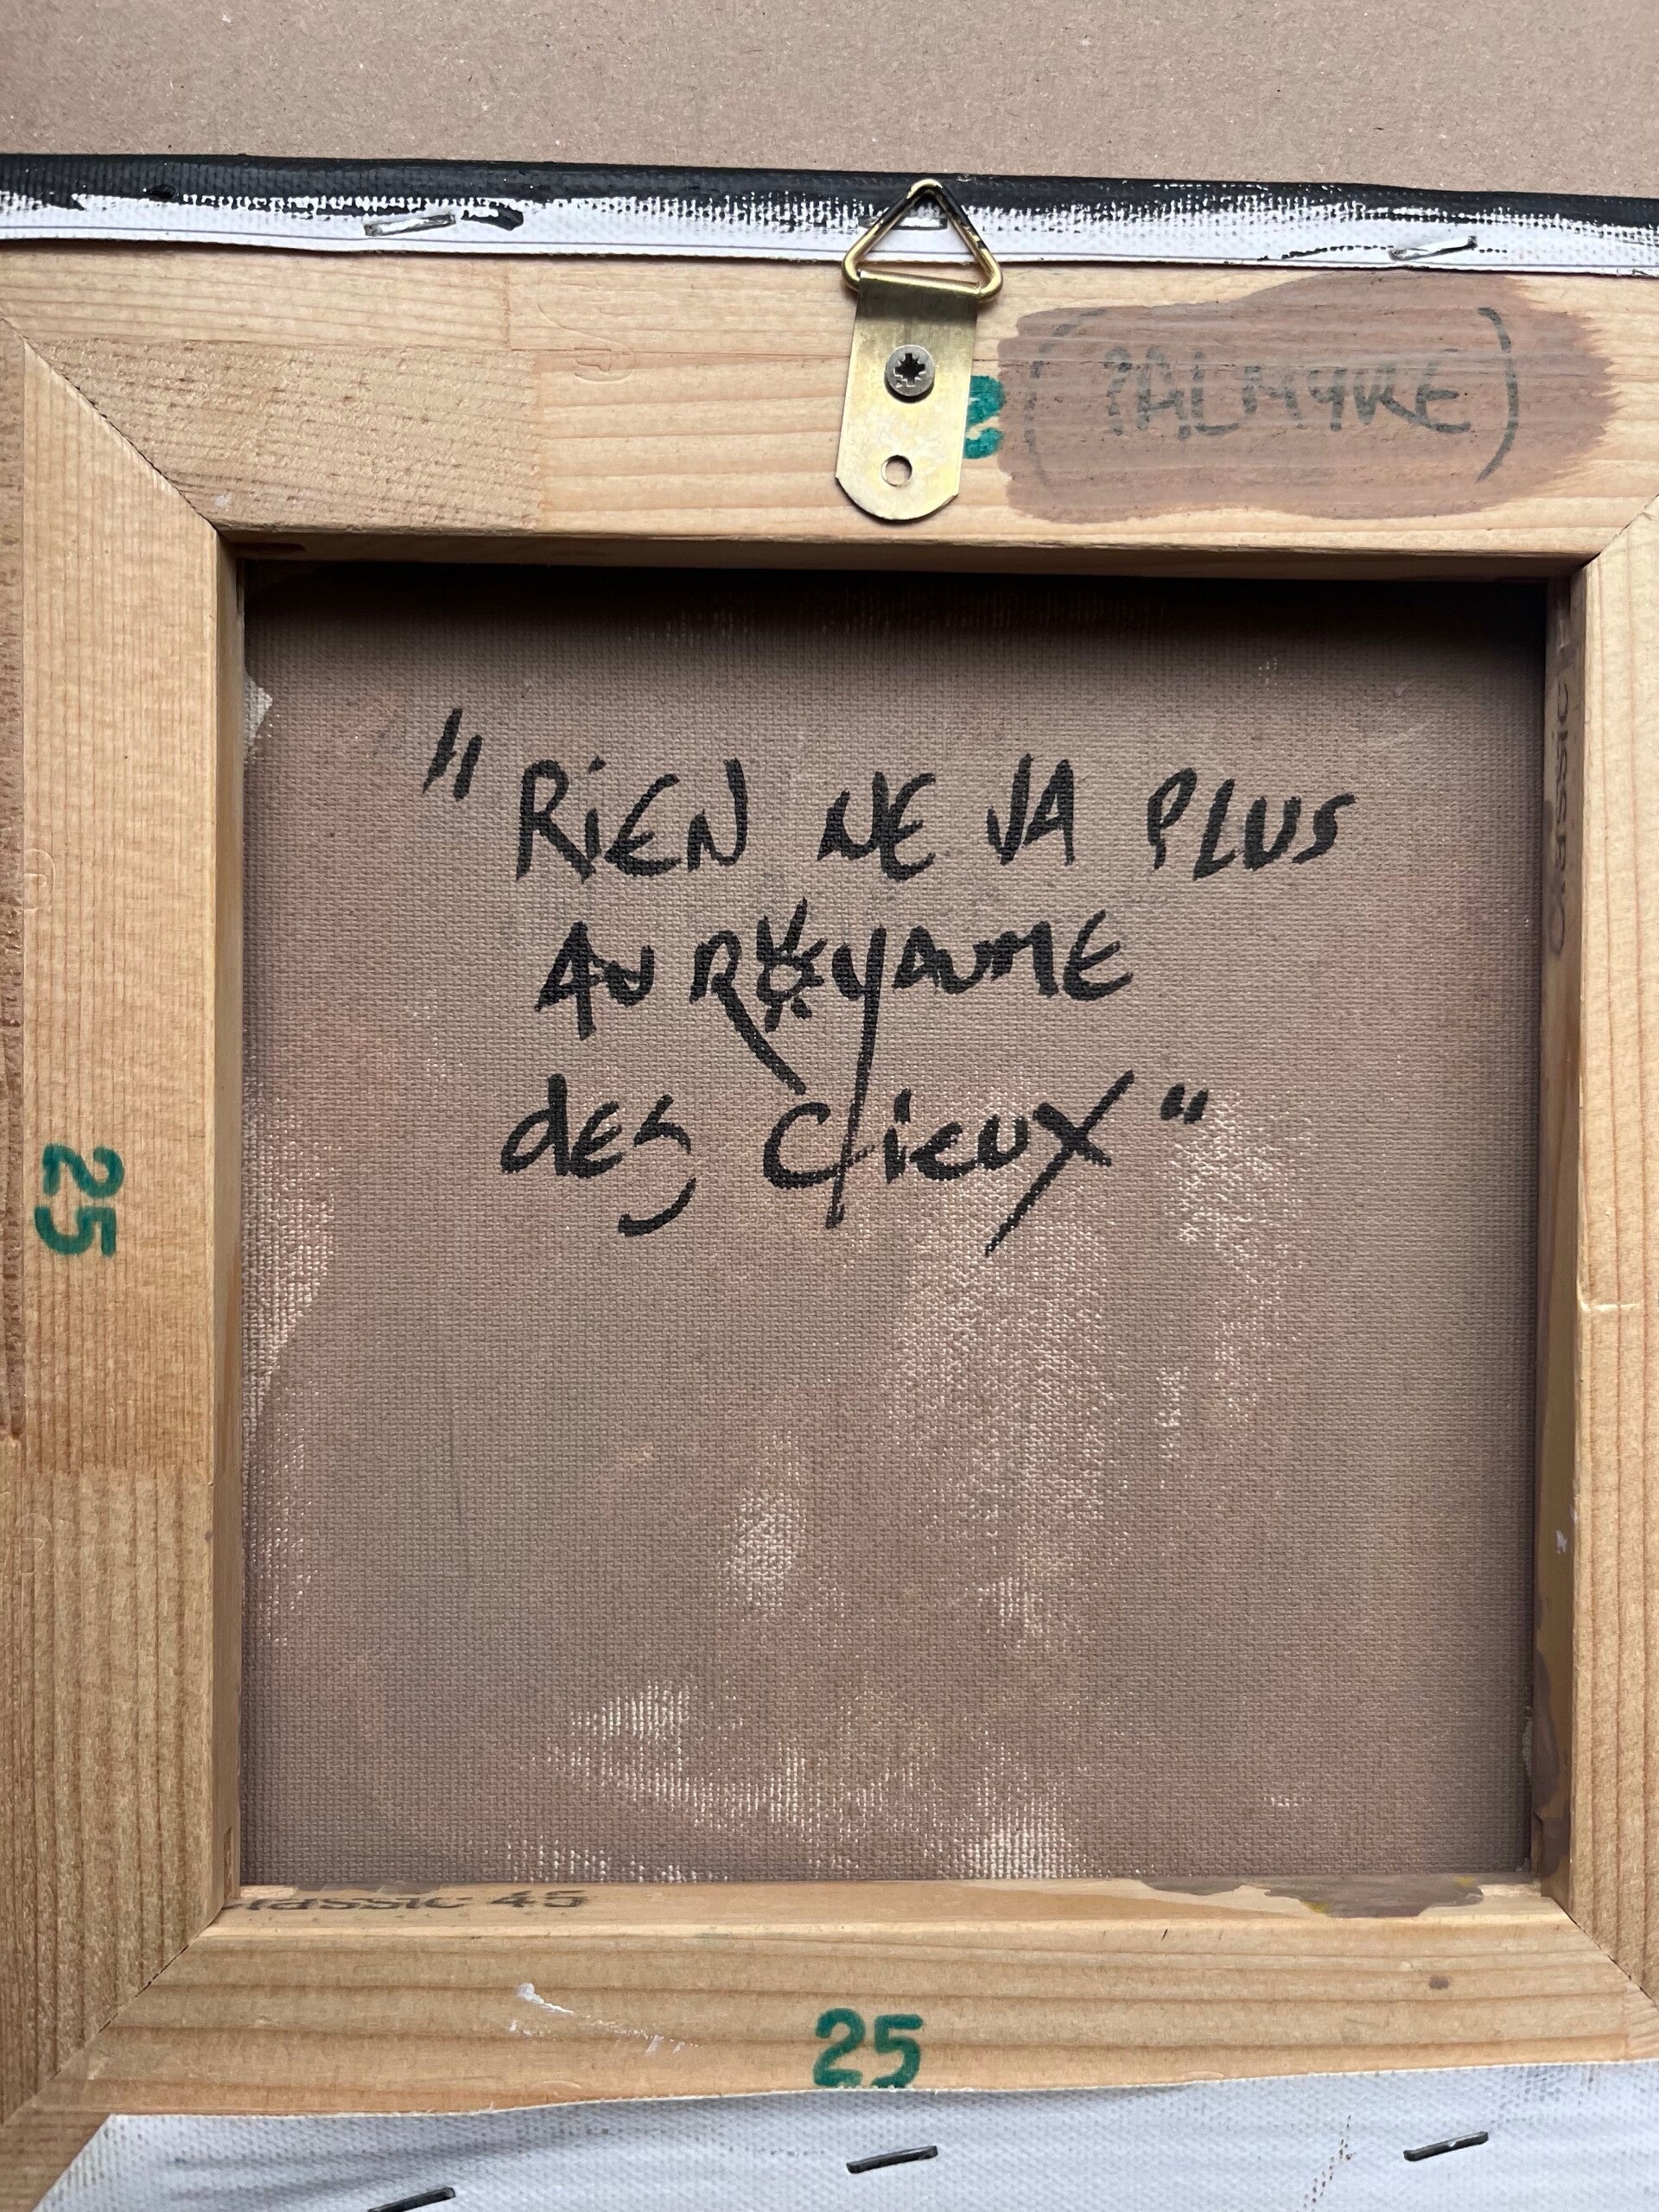 (PALMYRE)
" RiEN NE VA PLUS
AU ROYAUME
des Cieux "
25
Classic 45
25